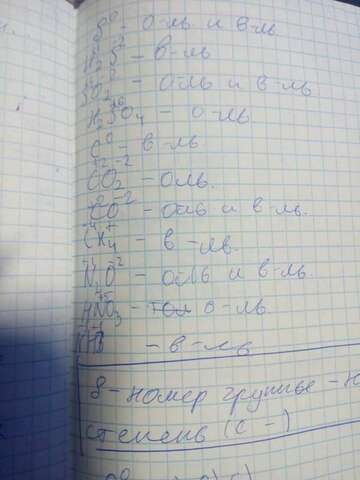 S⁰ - о-ль и в-ль
H₂S⁻² - в-ль
SO₂ - о-ль и в-ль
H₂SO₄ - о-ль
C⁰ - в-ль
CO₂⁻² - о-ль.
CO⁻² - о-ль и в-ль.
CH₄ - в-ль.
N₂O⁻² - о-ль и в-ль.
HNO₃ - о-ль
- в-ль
8 - номер группы -
степень (с -)